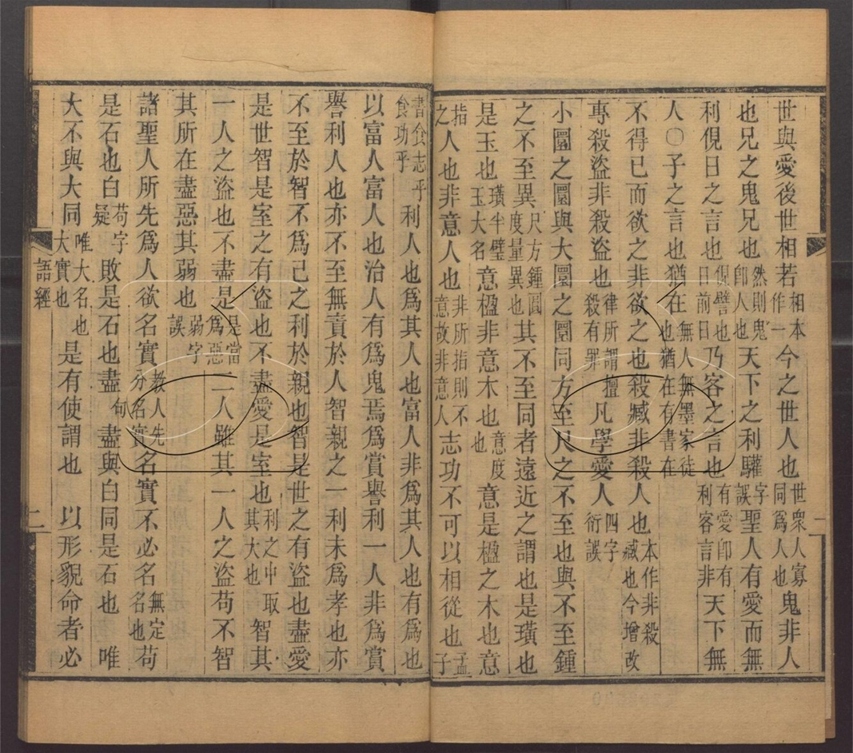 世與愛後世相若相本作一今之世人也世衆人寡同爲人也鬼非人
也兄之鬼兄也然則鬼卽人也天下之利驩字誤聖人有愛而無
利俔日之言也俔譬也日前日乃客之言也有愛卽有利客言非天下無
人○子之言也猶在無人無墨家徒也猶在有書在
不得已而欲之非欲之也殺臧非殺人也本作非殺臧也今增改
專殺盜非殺盜也律所謂擅殺有罪凡學愛人四字衍誤
小圜之圜與大圜之圜同方至尺之不至也與不至鍾
之不至異尺方鍾圓度量異也其不至同者遠近之謂也是璜也
是玉也璜半璧玉大名意楹非意木也意度也意是楹之木也意
指之人也非意人也非所指則不意故非意人志功不可以相從也孟子
書食志乎食功乎利人也爲其人也富人非爲其人也有爲也
以富人富人也治人有爲鬼焉爲賞譽利一人非爲賞
譽利人也亦不至無貴於人智親之一利未爲孝也亦
不至於智不爲己之利於親也智是世之有盜也盡愛
是世智是室之有盜也不盡愛是室也利之中取其大也智其
一人之盜也不盡是是當爲惡二人雖其一人之盜苟不智
其所在盡惡其弱也弱字誤
諸聖人所先爲人欲名實教人先分名實名實不必名無定名也苟
是石也白苟字疑敗是石也盡句盡與白同是石也唯
大不與大同唯大名也大實也是有使謂也以形貌命者必
語經
一
二